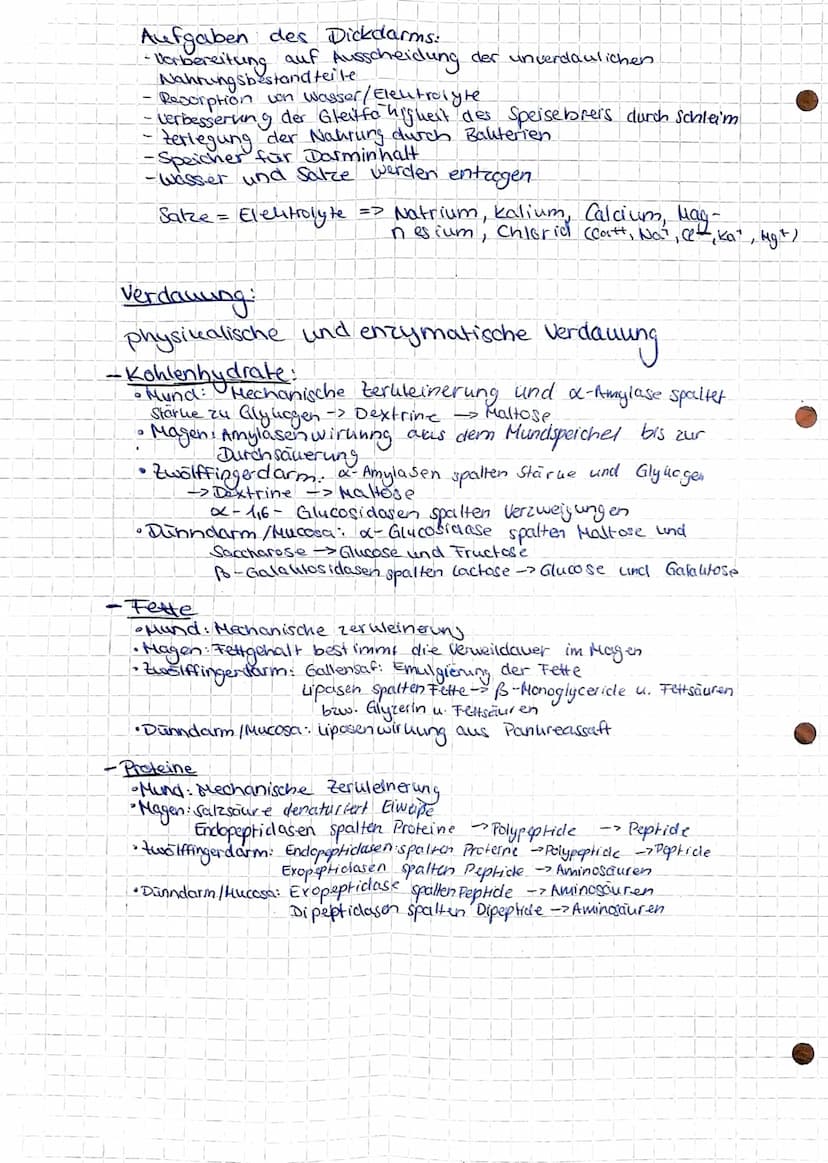 Aufgaben des Dickdarms:
- Vorbereitung auf Ausscheidung der unverdaulichen
Nahrungsbestandteile
- Resorption von Wasser/Elektrolyte
- Verbesserung der Gleitfähigkeit des Speisebreis durch Schleim
- Zerlegung der Nahrung durch Bakterien
- Speicher für Darminhalt
- Wasser und Salze werden entzogen
Salze = Elektrolyte => Natrium, Kalium, Calcium, Mag-
nesium, Chlorid (Ca++, Na+, Cl-, Ka+, Mg+)
Verdauung:
physikalische und enzymatische Verdauung
- Kohlenhydrate:
• Mund: Mechanische Zerkleinerung und α-Amylase spaltet
Stärke zu Glykogen -> Dextrine -> Maltose
• Magen: Amylasenwirkung aus dem Mundspeichel bis zur
Durchsäuerung
• Zwölffingerdarm: α-Amylasen spalten Stärke und Glykogen
-> Dextrine -> Maltose
α-1,6- Glucosidasen spalten Verzweigungen
• Dünndarm/Mucosa: α-Glucosidase spalten Maltose und
Saccharose -> Glucose und Fructose
β-Galaktosidasen spalten Lactose -> Glucose und Galaktose
- Fette
• Mund: Mechanische Zerkleinerung
• Magen: Fettgehalt bestimmt die Verweildauer im Magen
• Zwölffingerdarm: Gallensaf: Emulgierung der Fette
Lipasen spalten Fette -> β-Monoglyceride u. Fettsäuren
bzw. Glyzerin u. Fettsäuren
• Dünndarm/Mucosa: Lipasenwirkung aus Pankreassaft
- Proteine
• Mund: Mechanische Zerkleinerung
• Magen: Salzsäure denaturiert Eiweiße
Endopeptidasen spalten Proteine -> Polypeptide -> Peptide
• Zwölffingerdarm: Endopeptidasen spalten Proteine -> Polypeptide -> Peptide
Exopeptidasen spalten Peptide -> Aminosäuren
• Dünndarm/Mucosa: Exopeptidase spalten Peptide -> Aminosäuren
Dipeptidasen spalten Dipeptide -> Aminosäuren